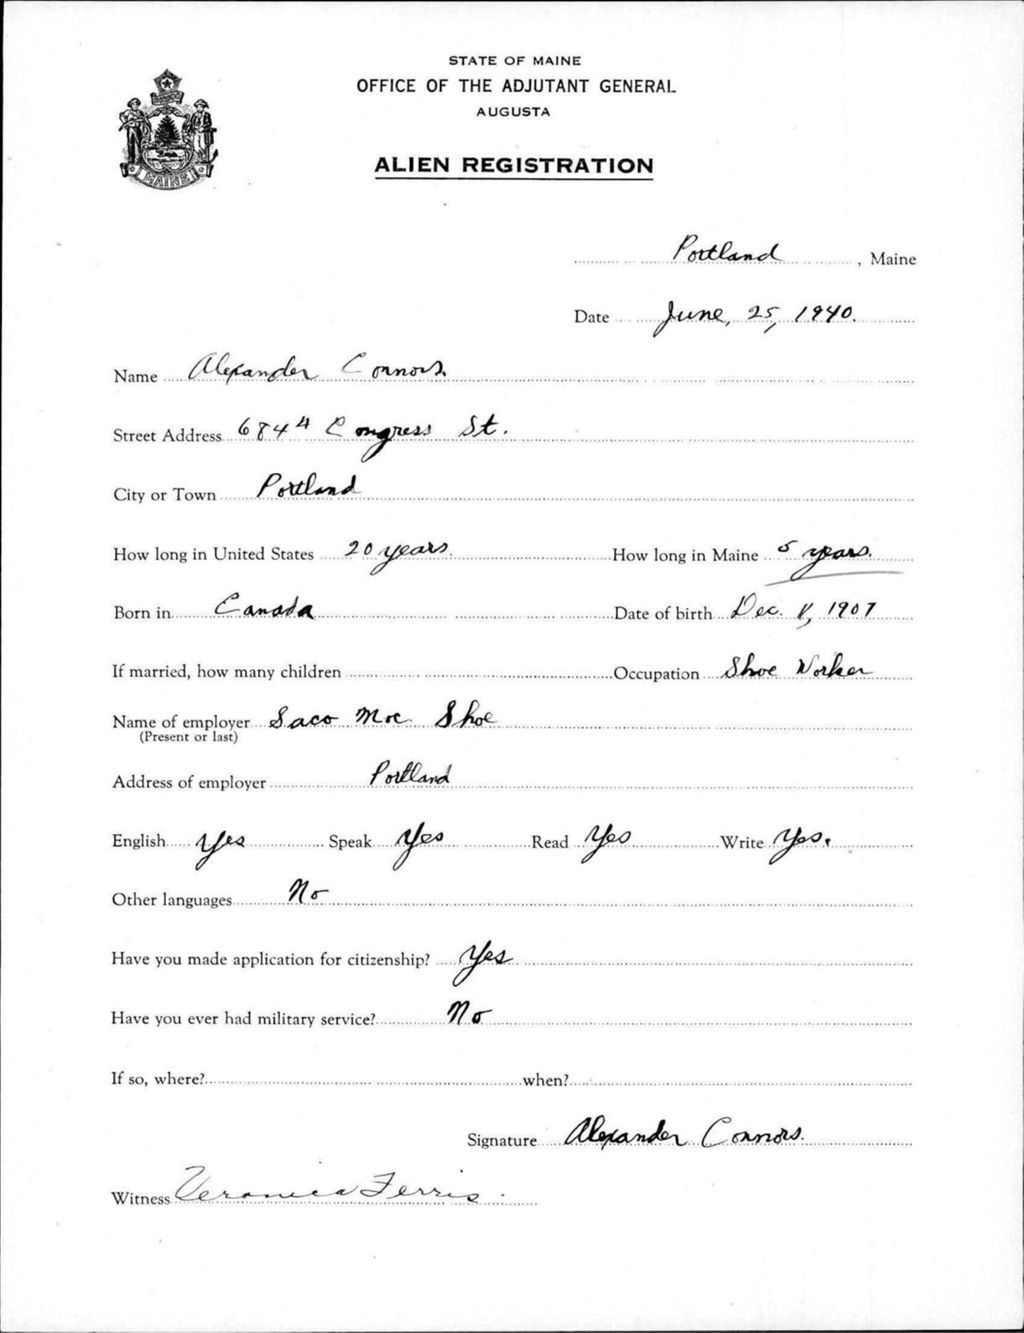 STATE OF MAINE
OFFICE OF THE ADJUTANT GENERAL
AUGUSTA
ALIEN REGISTRATION
MAINE
Portland, Maine
Date June, 25, 1940.
Name Alexander Connors.
Street Address 684 Congress St.
City or Town Portland
How long in United States 20 years. How long in Maine 5 years.
Born in Canada Date of birth Dec. 1907
If married, how many children Occupation Shoe Worker
Name of employer Saco Moc Shoe
(Present or last)
Address of employer Portland
English Yes Speak Yes Read Yes Write Yes.
Other languages No
Have you made application for citizenship? Yes
Have you ever had military service? No
If so, where? when?
Signature Alexander Connors.
Witness Veronica Ferris